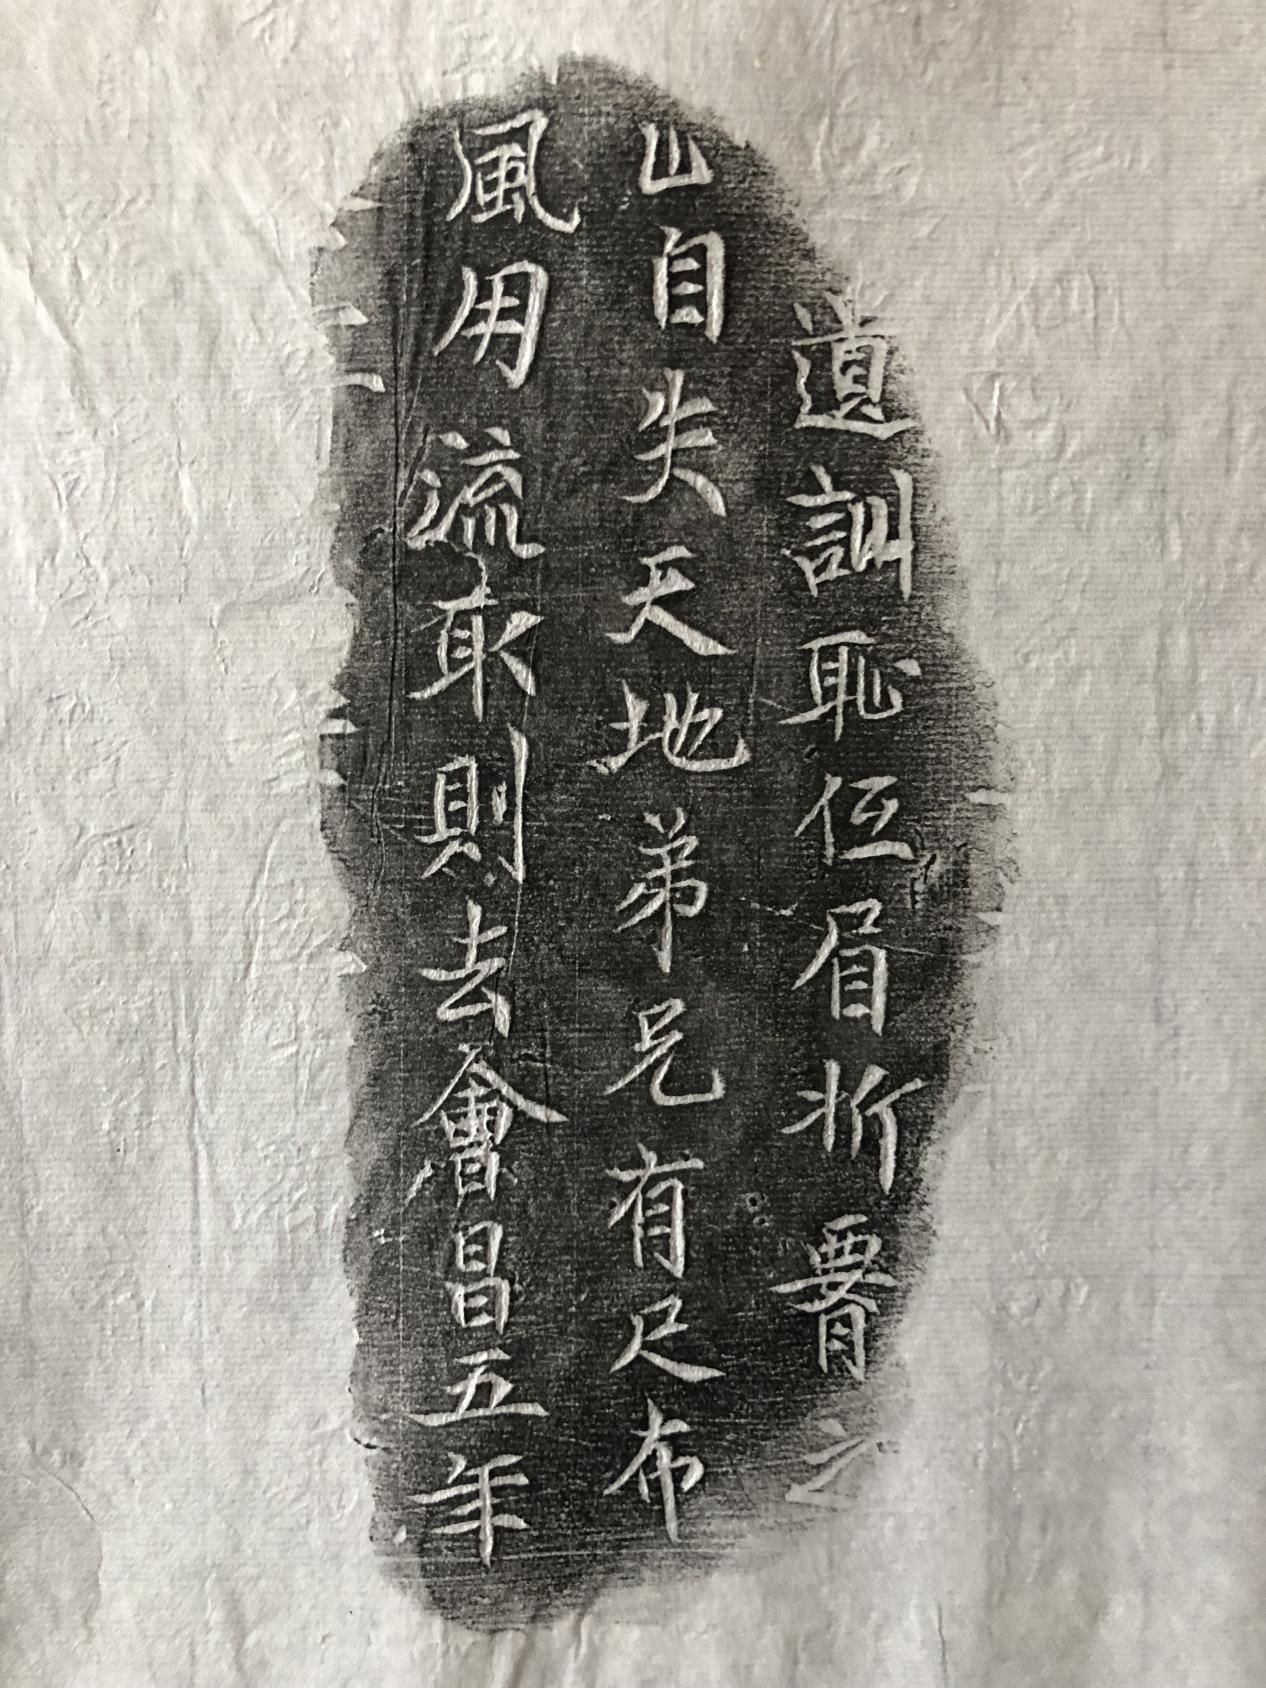 遺訓恥低眉折腰之
山自失天地弟兄有尺布
風用流取則去會昌五年